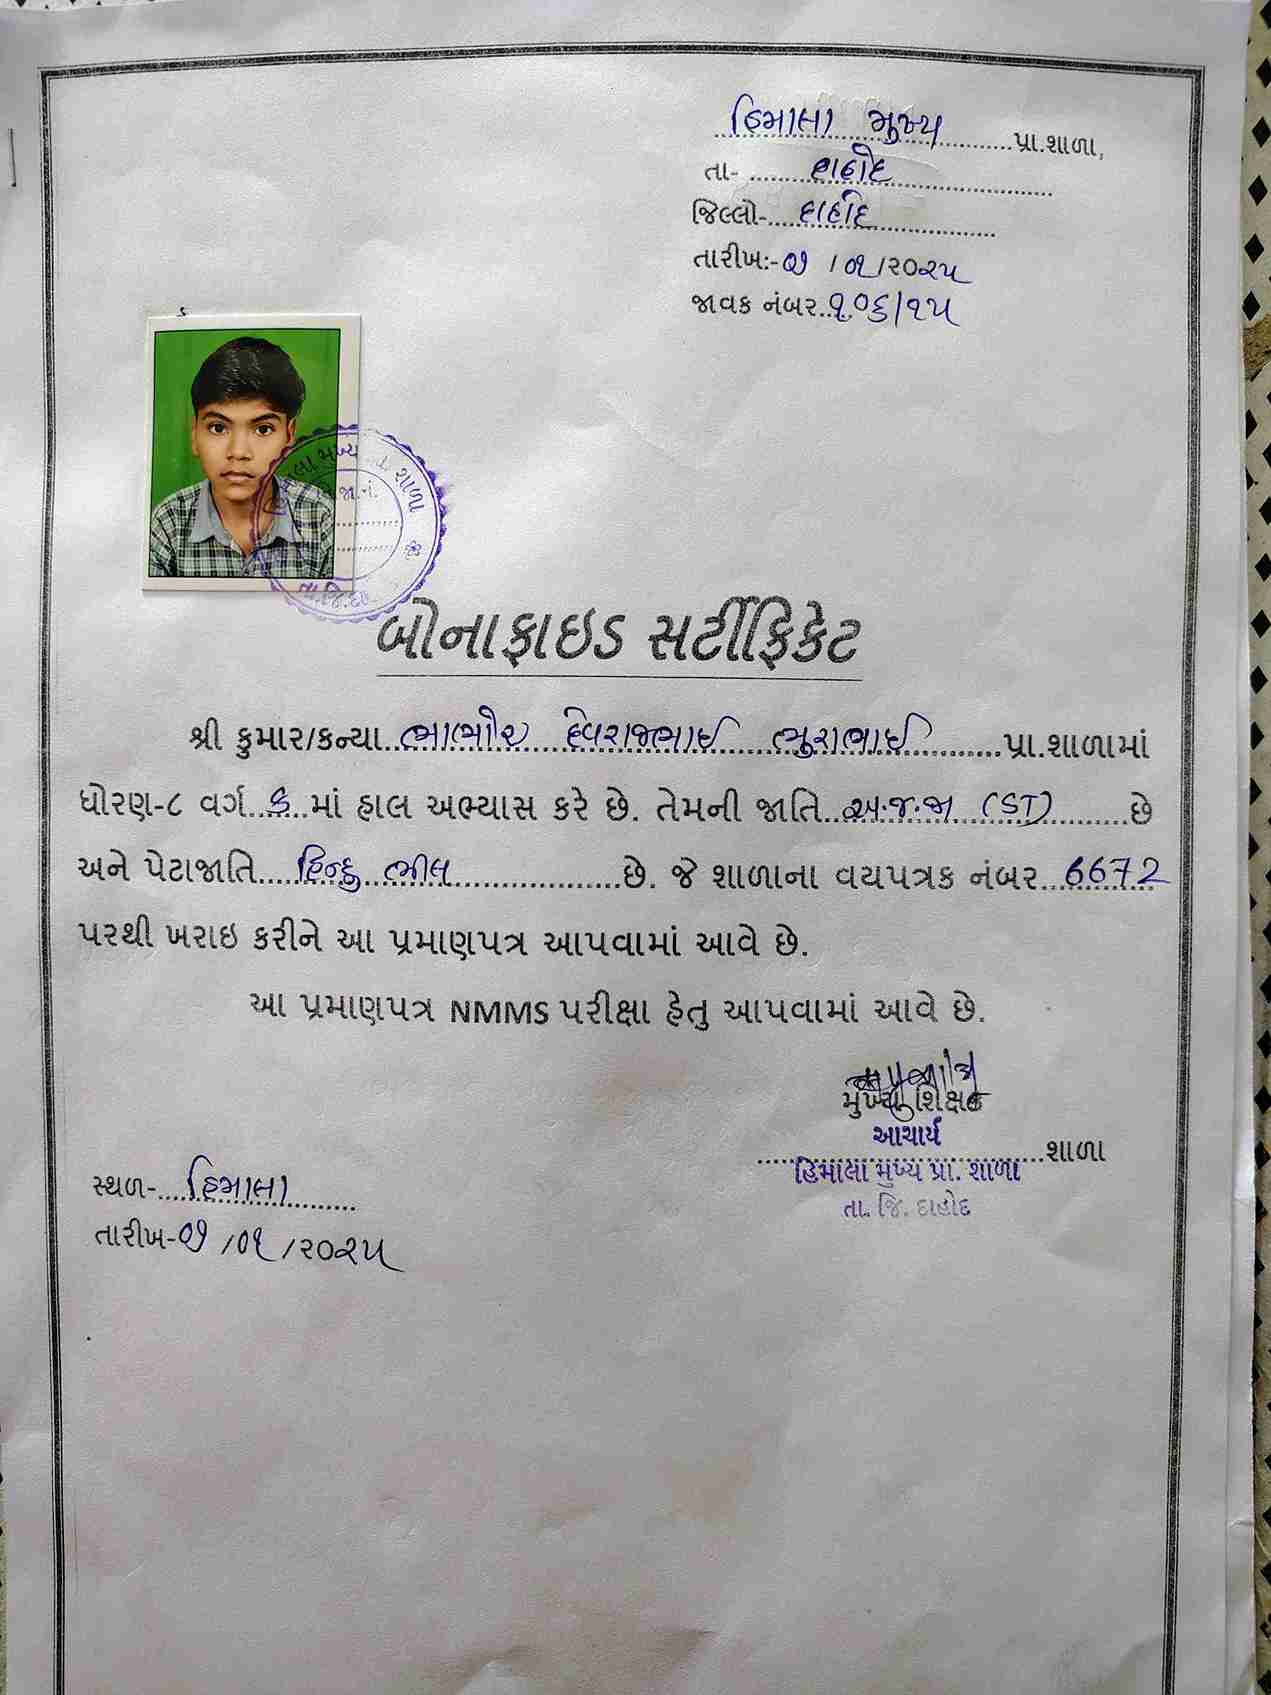 હિમાલા મુખ્ય પ્રા.શાળા,
તા- દાહોદ
જિલ્લો- દાહોદ
તારીખ:- ૦૭ /૦૧/૨૦૨૫
જાવક નંબર..૧૦૬/૧૫
મુખ્ય શાળા
જા.નં.
તા.જિ.દા
બોનાફાઇડ સર્ટીફિકેટ
શ્રી કુમાર/કન્યા ભાભોર દેવરાજભાઈ ભુરાભાઈ પ્રા.શાળામાં
ધોરણ-૮ વર્ગ ક માં હાલ અભ્યાસ કરે છે. તેમની જાતિ અ.જ.જા (ST) છે
અને પેટાજાતિ હિન્દુ ભીલ છે. જે શાળાના વયપત્રક નંબર 6672
પરથી ખરાઇ કરીને આ પ્રમાણપત્ર આપવામાં આવે છે.
આ પ્રમાણપત્ર NMMS પરીક્ષા હેતુ આપવામાં આવે છે.
મુખ્ય શિક્ષક
આચાર્ય
શાળા
હિમાલા મુખ્ય પ્રા. શાળા
તા. જિ. દાહોદ
સ્થળ- હિમાલા
તારીખ- ૦૭ /૦૧ /૨૦૨૫